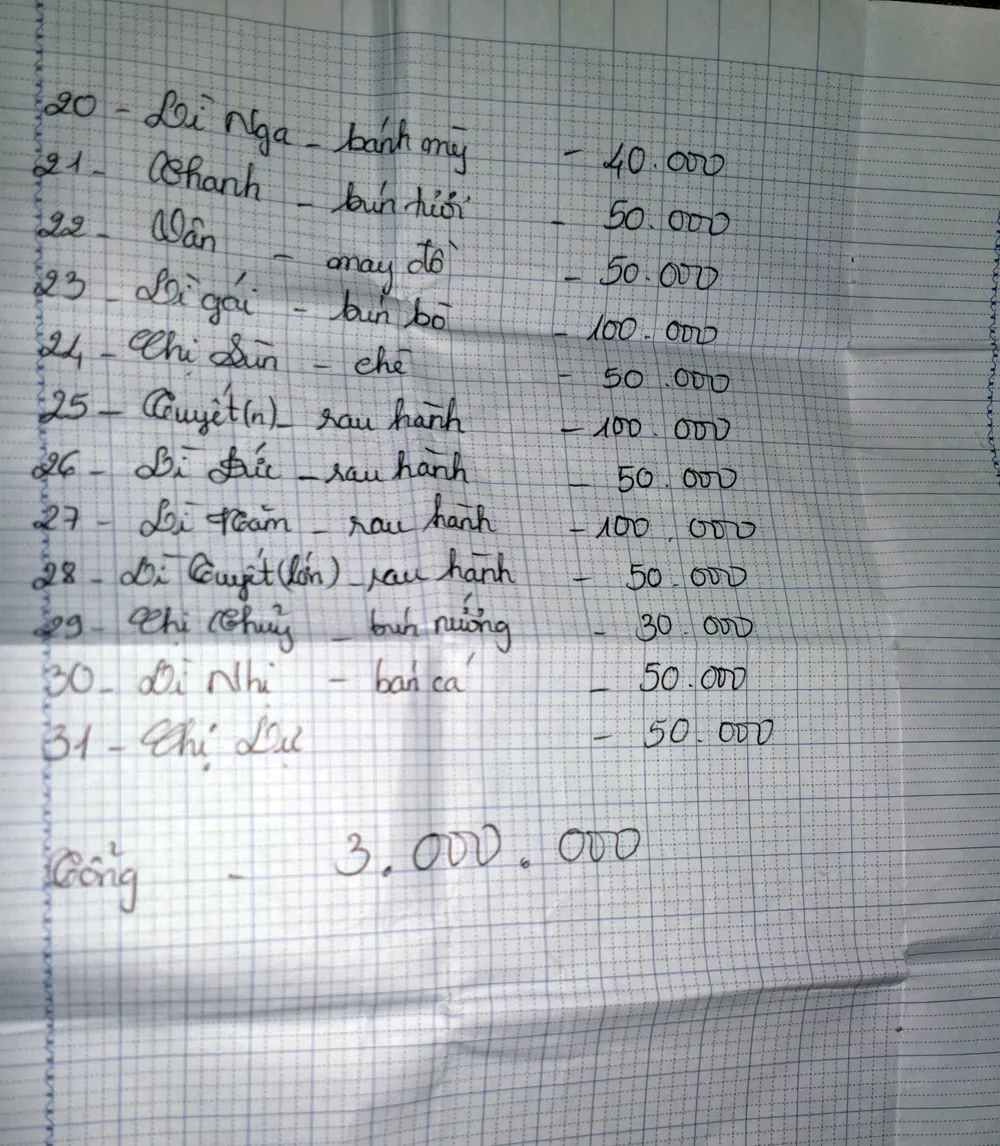 20 - Dì Nga - bánh mỳ - 40.000
21 - Thanh - bún tươi - 50.000
22 - Vân - may đồ - 50.000
23 - Dì gái - bún bò - 100.000
24 - Chị Sun - chè - 50.000
25 - Quyết(n) - rau hành - 100.000
26 - Dì Đức - rau hành - 50.000
27 - Dì - rau hành - 100.000
28 - Dì Quyết(lớn) - rau hành - 50.000
29 - Chị Thuỷ - bún nướng - 30.000
30 - Dì Nhi - bán cá - 50.000
31 - Chị Dự - 50.000
Tổng - 3.000.000